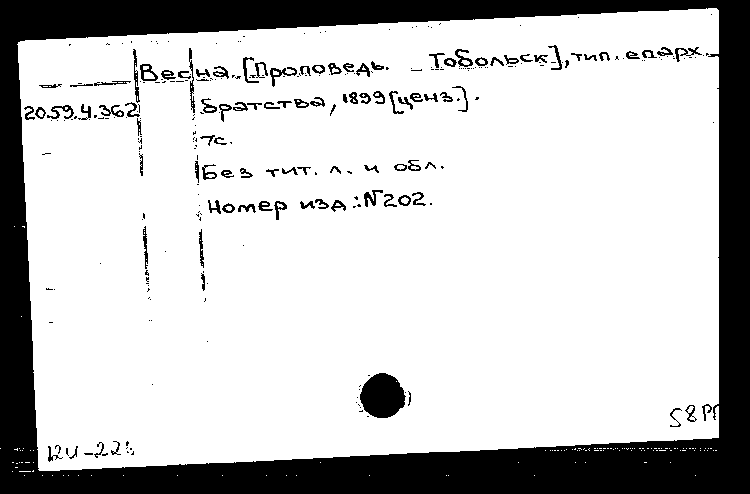 Весна. [Проповедь. - Тобольск], тип. епарх.
20.59.4.362 братства, 1899 [ценз.].
7с.
Без тит. л. и обл.
Номер изд.: N202.